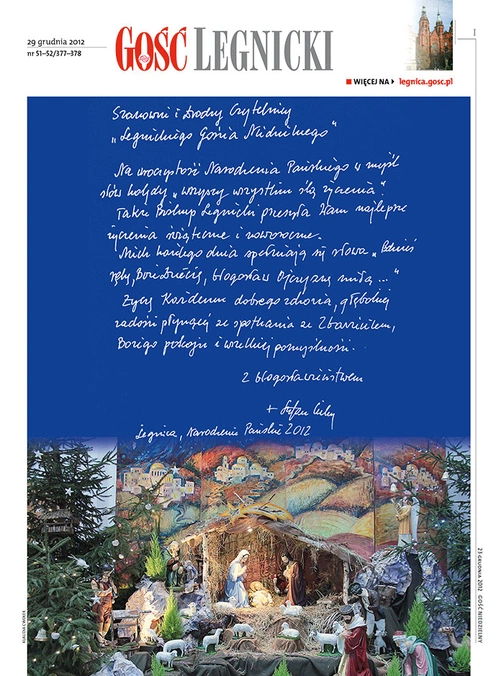 29 grudnia 2012
nr 51–52/377–378
GOŚĆ LEGNICKI
WIĘCEJ NA
legnica.gosc.pl
Szanowni i Drodzy Czytelnicy
„Legnickiego Gościa Niedzielnego"
Na uroczystość Narodzenia Pańskiego w myśl
słów kolędy „wszyscy wszystkim ślą życzenia"
Także Biskup Legnicki przesyła Wam najlepsze
życzenia świąteczne i noworoczne.
Niech każdego dnia spełniają się słowa „Podnieś
rękę, Boże Dziecię, błogosław Ojczyznę miłą ..."
Życzę Każdemu dobrego zdrowia, głębokiej
radości płynącej ze spotkania ze Zbawicielem,
Bożego pokoju i wszelkiej pomyślności.
Z błogosławieństwem
+ Stefan Cichy
Legnica, Narodzenie Pańskie 2012
23 GRUDNIA 2012 GOŚĆ NIEDZIELNY